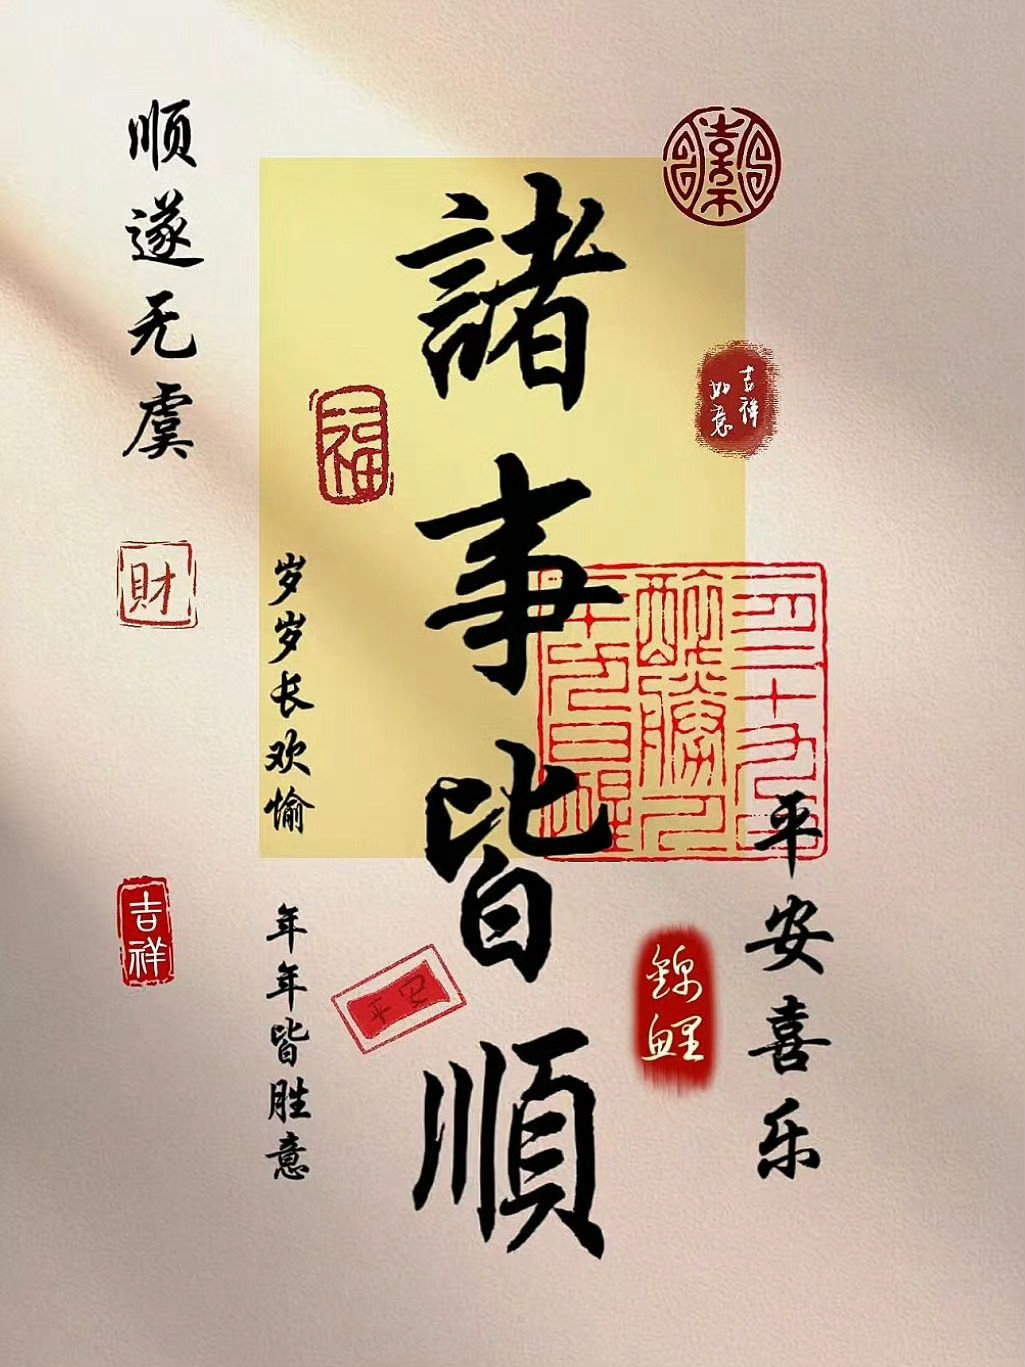 顺遂无虞
諸事皆順
福
吉祥
如意
財
岁岁长欢愉
平安喜乐
吉祥
年年皆胜意
平安
錦鲤